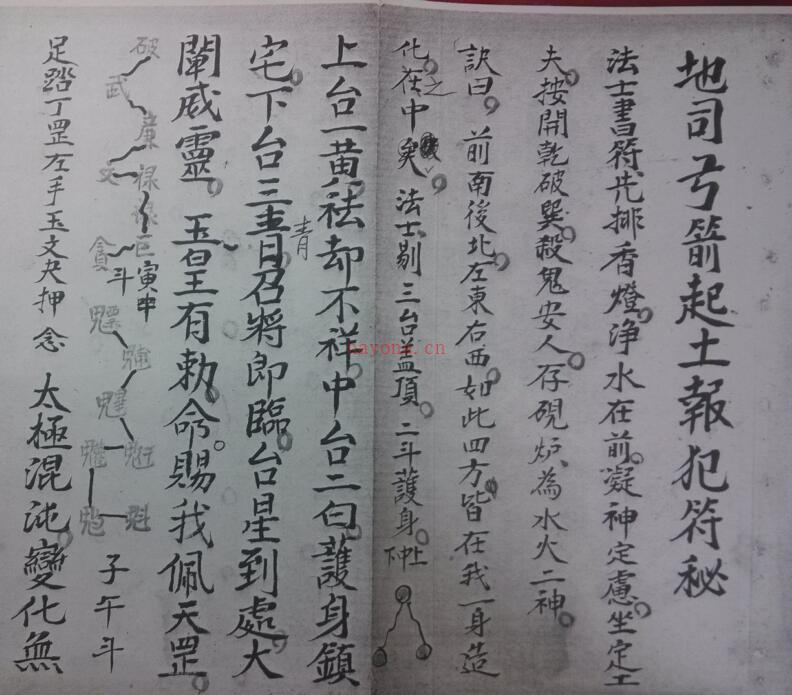 地司弓箭起土報犯符秘
法士書符先排香燈淨水在前凝神定慮坐定工
夫按開乾破巽殺鬼安人存硯炉為水火二神
訣曰前南後北左東右西如此四方皆在我一身造
化之在中矣法士剔三台盖頂二斗護身上中下
上台一黄祛却不祥中台二白護身鎮
宅下台三青召將即臨台星到處大
青
闡威靈玉皇有勅命賜我佩天罡
破武廉文祿巨貪斗寅申
魁魁
子午斗
足踏丁罡左手玉文决押念太極混沌變化無
nayona.cn